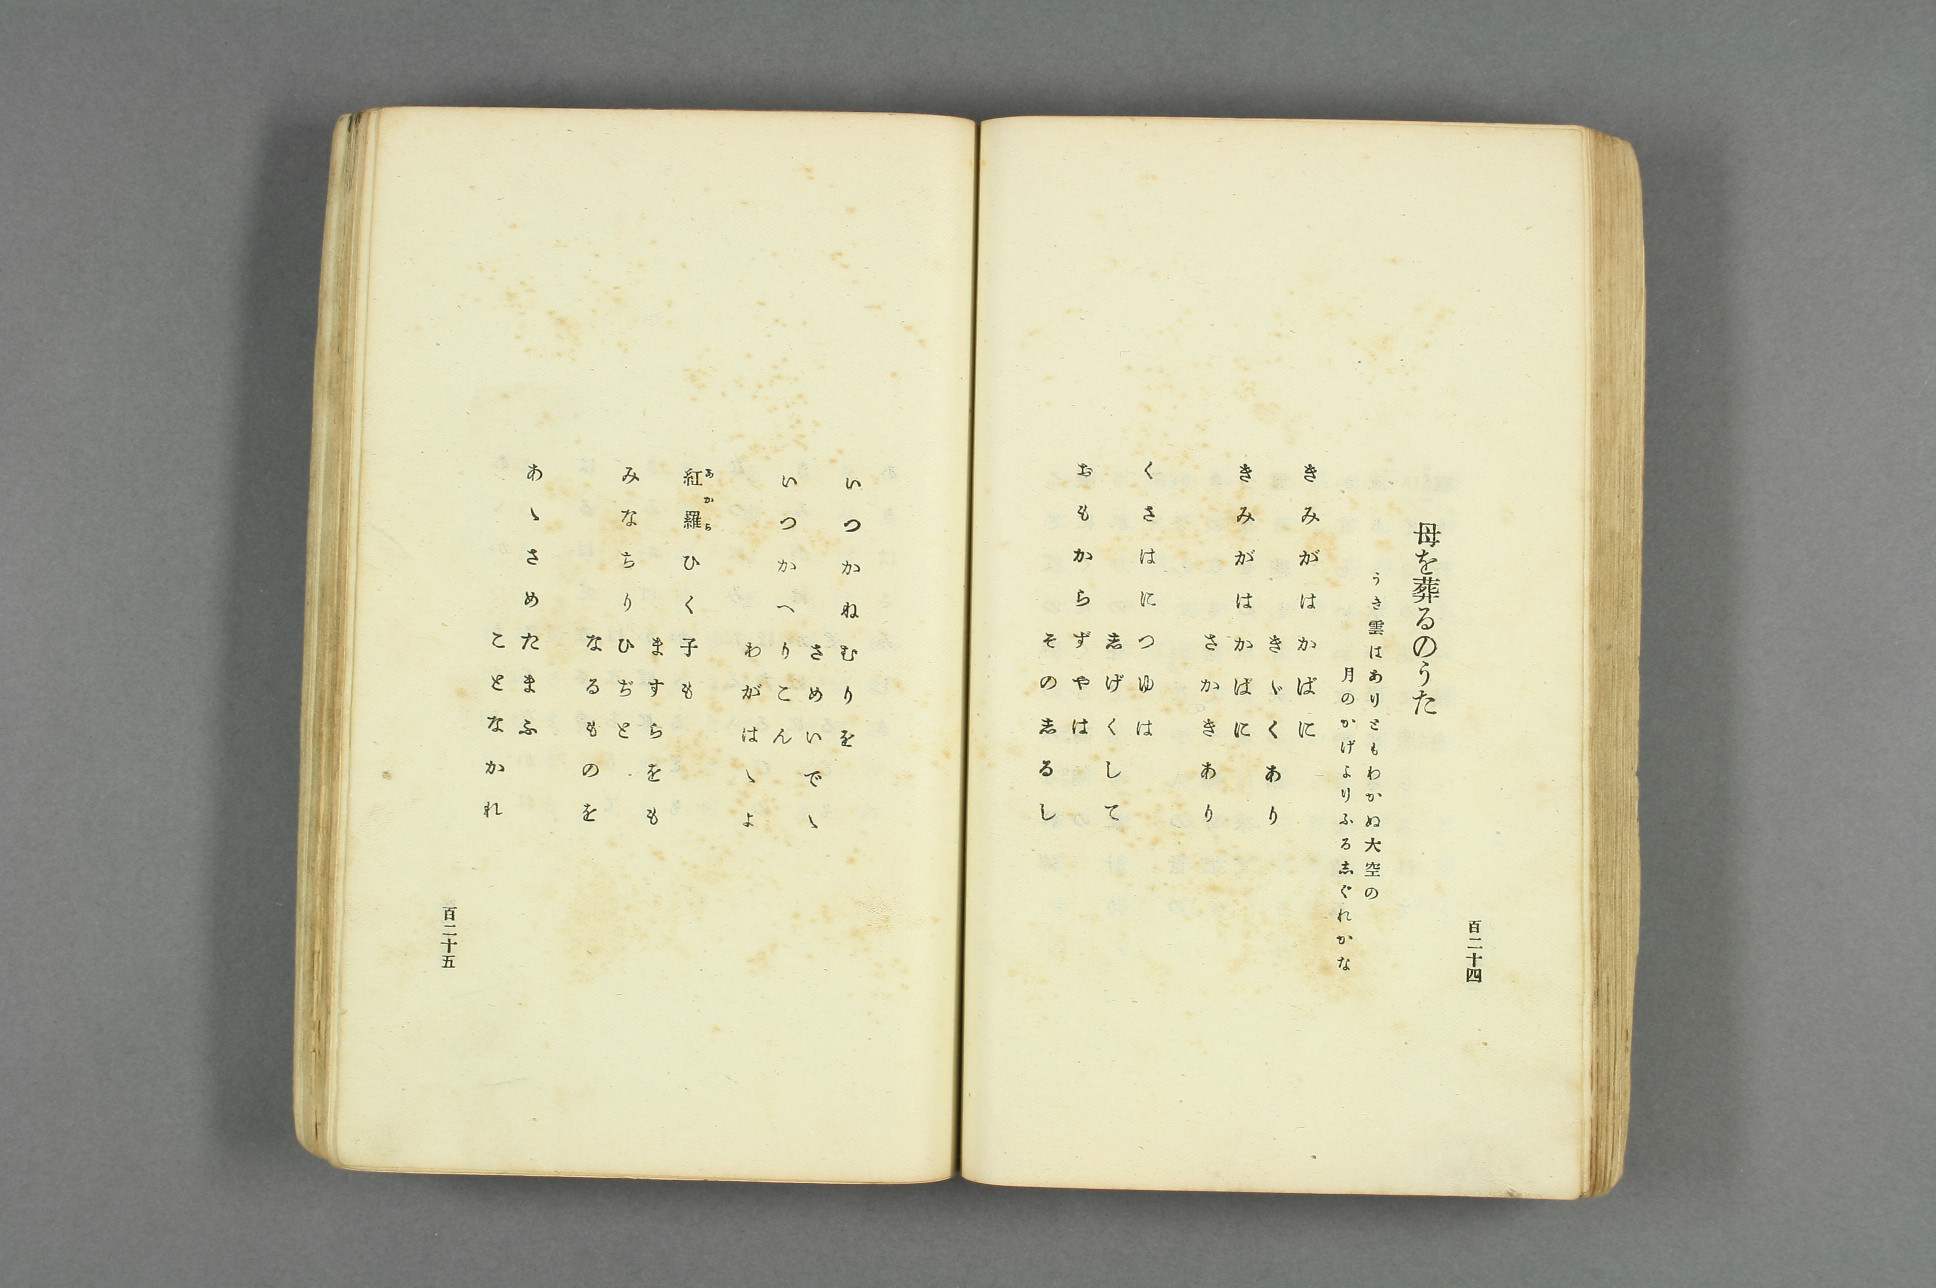 百二十四
母を葬るのうた
うき雲はありともわかぬ大空の
月のかげよりふるしぐれかな
きみがはかばに
きゞくあり
きみがはかばに
さかきあり
くさはにつゆは
しげくして
おもからずやは
そのしるし
いつかねむりを
さめいでゝ
いつかへりこん
わがはゝよ
紅羅ひく子も
あから
ますらをも
みなちりひぢと
なるものを
あゝさめたまふ
ことなかれ
百二十五